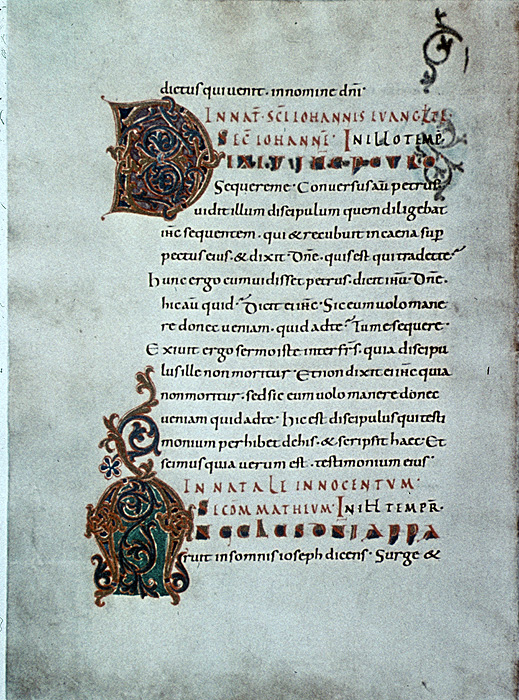 dictus qui venit · in nomine dñi ·
IN NAT · SC̄I IOHANNIS EVANGLTE ·
SEC̄ IOHANNĒ · IN ILLO TEMP̄ ·
DIXIT IH̄S PETRO
Sequere me · Conversus aū petrus
vidit illum discipulum quem diligebat
ih̄c sequentem · qui & recubuit in caena sup
pectus eius · & dixit · Dñe · quis est qui tradet te ·
Hunc ergo cum vidisset petrus · dicit ihū · Dñe ·
hic aū quid · Dicit ei ih̄c · Sic eum volo mane
re donec veniam · quid ad te · Tu me sequere ·
Exivit ergo sermo iste inter frs̄ · quia discipu
lus ille non moritur · Et non dixit ei ih̄c quia
non moritur · sed sic eum volo manere donec
veniam quid ad te · hic est discipulus qui testi
monium perhibet de his · & scripsit haec · Et
scimus quia verum est · testimonium eius ·
IN NATALE INNOCENTUM ·
SECOM MATHEUM · IN ILL TEMPR̄ ·
ECCE ANGELUS DNI APPA
ruit in somnis ioseph dicens · Surge &